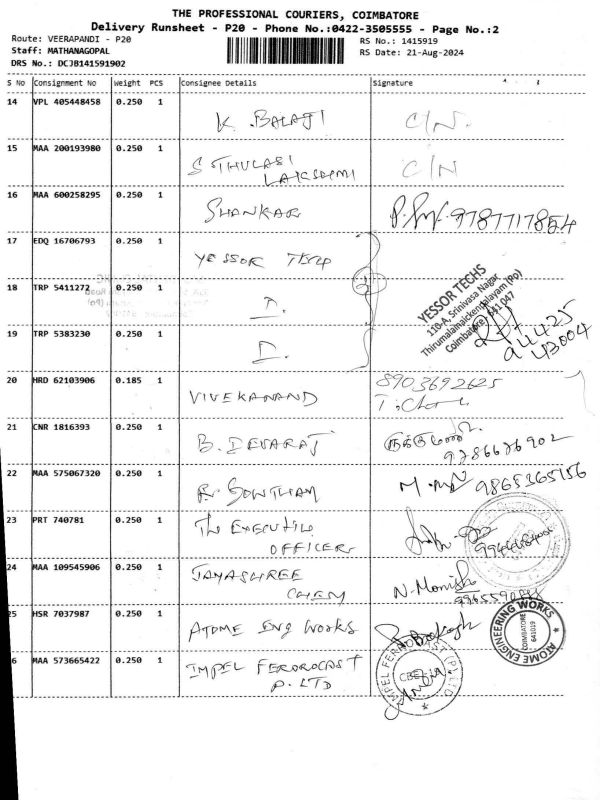 THE PROFESSIONAL COURIERS, COIMBATORE
Delivery Runsheet - P20 - Phone No.:0422-3505555 - Page No.:2
Route: VEERAPANDI - P20
RS No.: 1415919
Staff: MATHANAGOPAL
RS Date: 21-Aug-2024
DRS No.: DCJB141591902
S No Consignment No Weight PCS Consignee Details Signature
14 VPL 405448458 0.250 1 K. BALAJI C/N.
15 MAA 200193980 0.250 1 S THULASI
LAKSHMI C/N
16 MAA 600258295 0.250 1 SHANKAR 9787717854
17 EDQ 16706793 0.250 1 YESSOR TECH
YESSOR TECHS
110-A, Srinivasa Nagar
Thirumalainaickenpalayam (Po)
Coimbatore - 641 047
18 TRP 5411272 0.250 1 D.
19 TRP 5383230 0.250 1 D.
94425
43004
20 HRD 62103906 0.185 1 VIVEKANAND 8903692625
21 CNR 1816393 0.250 1 B. DEVARAJ
9786676902
22 MAA 575067320 0.250 1 R. GOWTHAM 9865365156
23 PRT 740781 0.250 1 The EXECUTIVE
OFFICER
24 MAA 109545906 0.250 1 JAYASHREE
CHEM N. Monish
25 HSR 7037987 0.250 1 ATOME Eng Works
ATOME ENGINEERING WORKS
COIMBATORE
641019
6 MAA 573665422 0.250 1 IMPEL FERROCAST
P. LTD
IMPEL FERROCAST (P) LTD
CBE-19